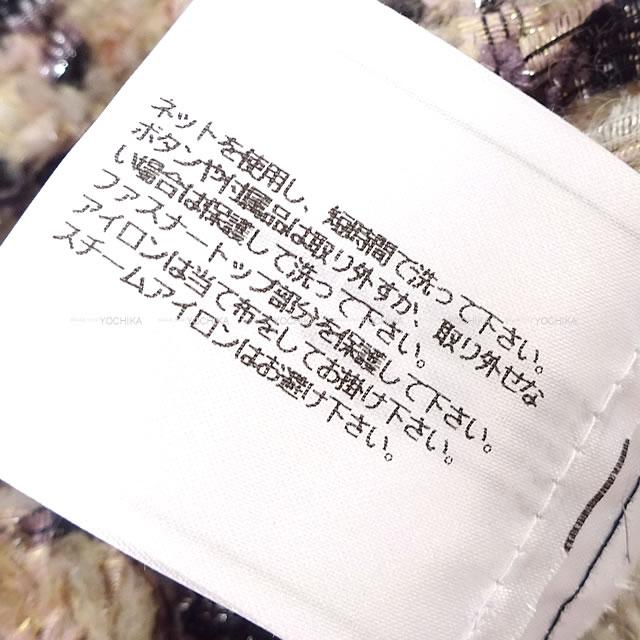 ネットを使用し、短時間で洗って下さい。
ボタンや付属品は取り外すか、取り外せな
い場合は保護して洗って下さい。
ファスナートップ部分を保護して下さい。
アイロンは当て布をしてお掛け下さい。
スチームアイロンはお避け下さい。
YOCHIKA
YOCHIKA